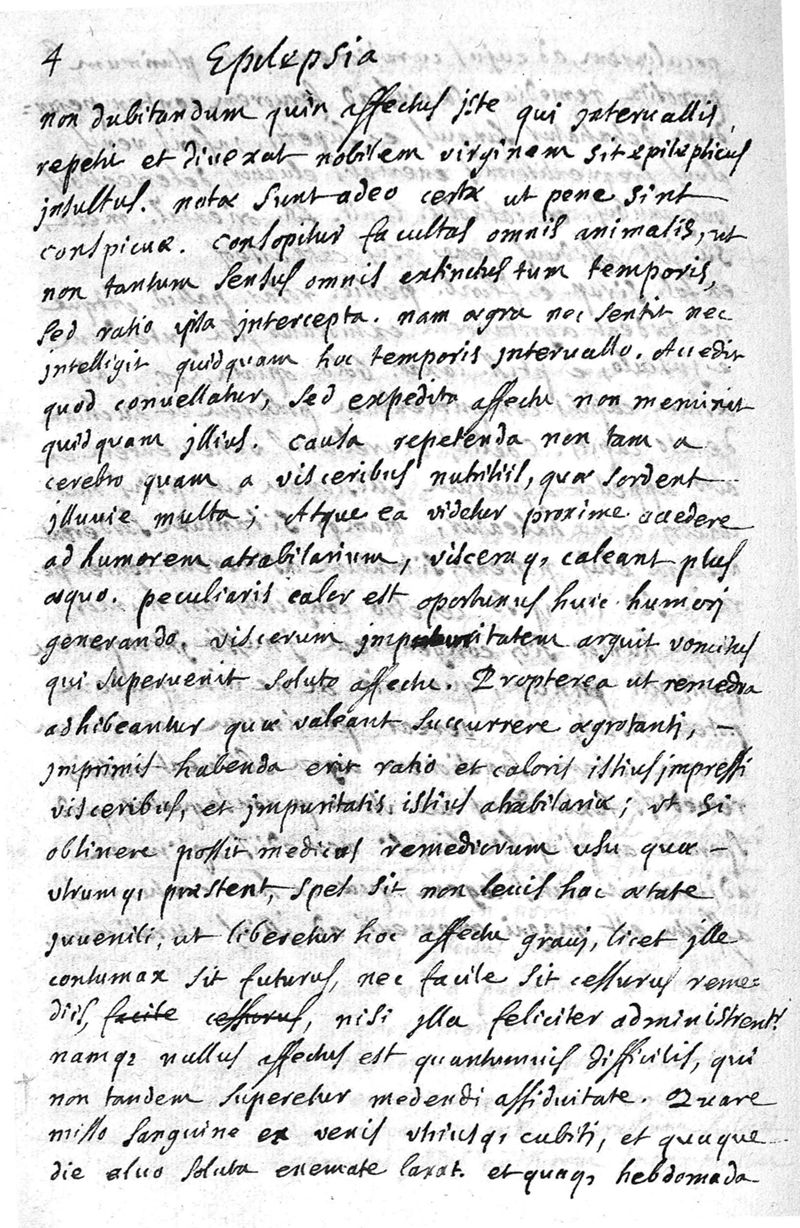 4 Epilepsia
non dubitandum quin affectus jste qui jntervallis,
repetit et divexat nobilem virginem sit epilepticus
jnsultus. notæ sunt adeo certæ ut pene sint
conspicuæ. consopitur facultas omnis animalis, ut
non tantum sensus omnis extinctus tum temporis,
sed ratio ipsa jntercepta. nam ægra nec sentit nec
jntelligit quidquam hoc temporis jntervallo. Accedit
quod convellatur, sed expedita affectu non meminit
quidquam jllius. causa repetenda non tam a
cerebro quam a visceribus nutritiis, quæ sordent
jlluvie multa; Atque ea videtur proxime accedere
ad humorem atrabilarium, viscera q, caleant plus
æquo. peculiaris calor est oportunus huic humori
generando. viscerum jmpuritatem arguit vomitus
qui supervenit soluto affectu. Propterea ut remedia
adhibeantur quæ valeant succurrere ægrotanti, –
jmprimis habenda erit ratio et caloris istius jmpressi
visceribus, et jmpuritatis istius atrabilariæ; ut si
obtinere possit medicus remediorum usu quæ –
utrumq, præstent, spes sit non levis hac ætate
juvenili, ut liberetur hoc affectu gravj, licet jlle
contumax sit futurus, nec facile sit cessurus reme=
diis, facile cessurus, nisi jlla feliciter administrent.
namq, nullus affectus est quantumvis difficilis, qui
non tandem superetur medendi assiduitate. Quare
misso sanguine ex venis utriusq, cubiti, et quaque
die alvo soluta enemate laxat. et quaq, hebdomada